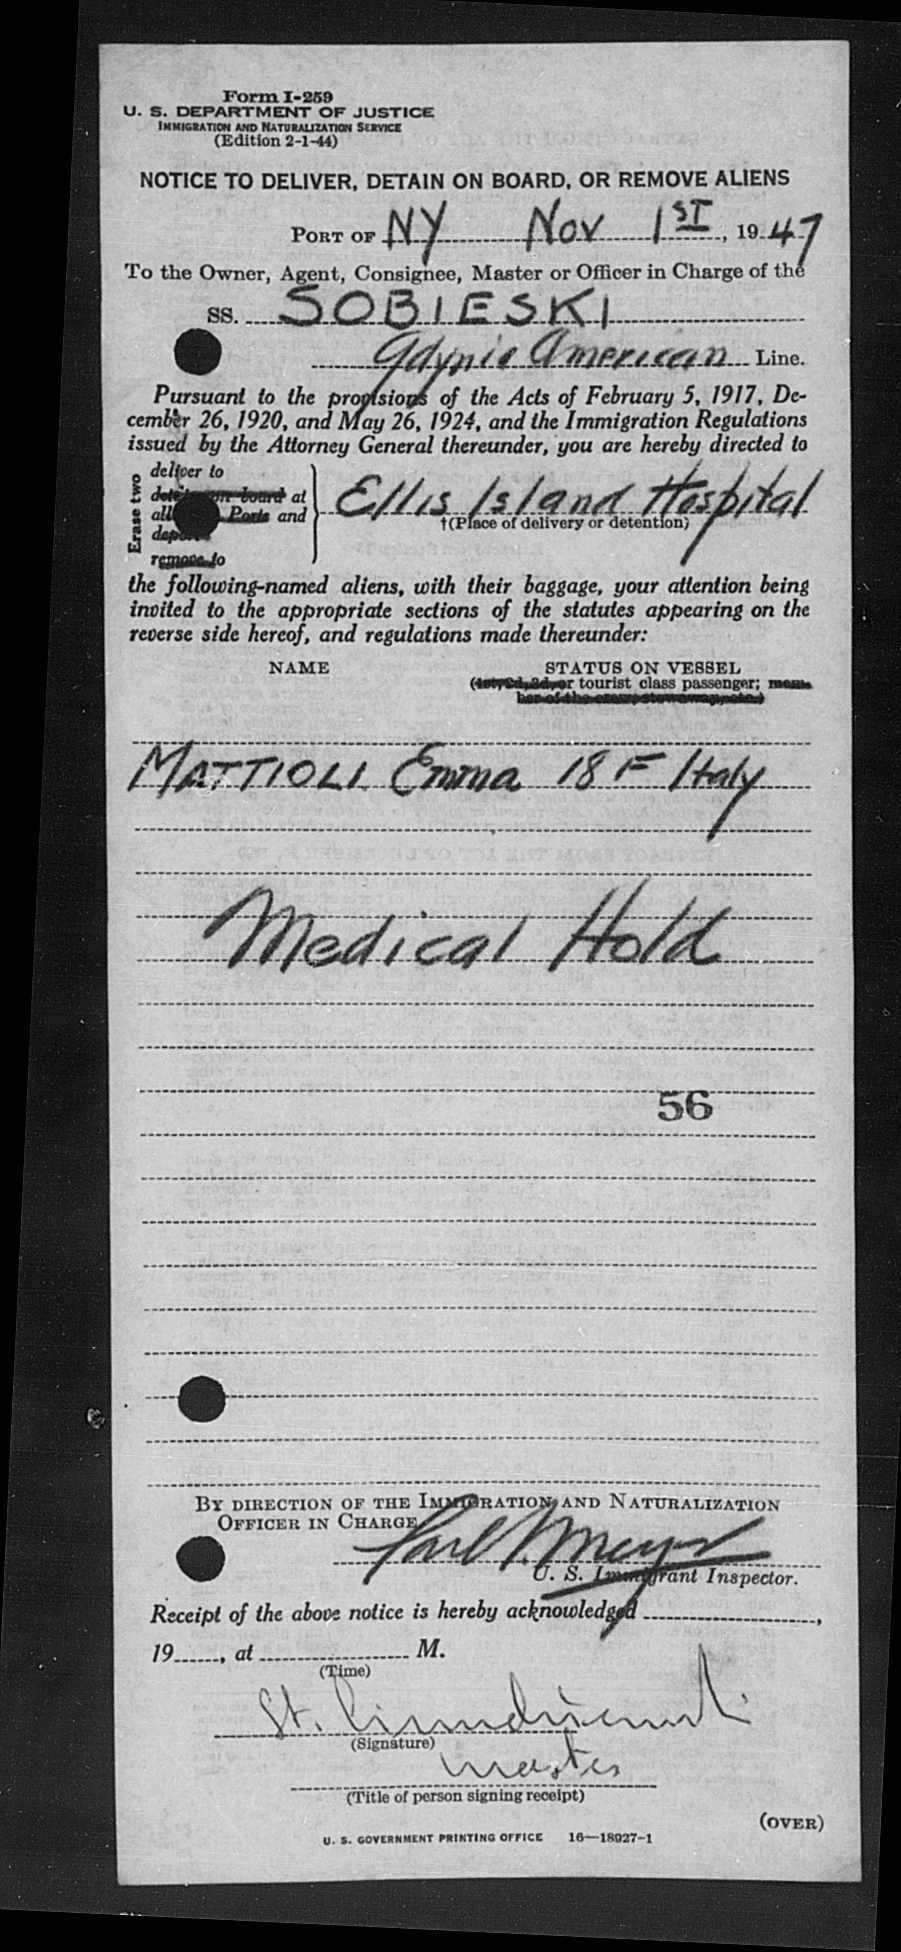 Form I-259
U. S. DEPARTMENT OF JUSTICE
IMMIGRATION AND NATURALIZATION SERVICE
(Edition 2-1-44)
NOTICE TO DELIVER, DETAIN ON BOARD, OR REMOVE ALIENS
PORT OF NY Nov 1ST, 1947
To the Owner, Agent, Consignee, Master or Officer in Charge of the
SS. SOBIESKI
Gdynia American Line.
Pursuant to the provisions of the Acts of February 5, 1917, De-
cember 26, 1920, and May 26, 1924, and the Immigration Regulations
issued by the Attorney General thereunder, you are hereby directed to
Erase two
deliver to
detain on board at
all Ports and
remove to
Ellis Island Hospital
†(Place of delivery or detention)
the following-named aliens, with their baggage, your attention being
invited to the appropriate sections of the statutes appearing on the
reverse side hereof, and regulations made thereunder:
NAME STATUS ON VESSEL
(1st, 2d, 3d, or tourist class passenger; mem-
ber of the crew, stowaway, etc.)
MATTIOLI Emma 18 F Italy
Medical Hold
56
BY DIRECTION OF THE IMMIGRATION AND NATURALIZATION
OFFICER IN CHARGE
U. S. Immigrant Inspector.
Receipt of the above notice is hereby acknowledged ,
19 , at M.
(Time)
St.
(Signature)
master
(Title of person signing receipt)
(OVER)
U. S. GOVERNMENT PRINTING OFFICE 16—18927-1